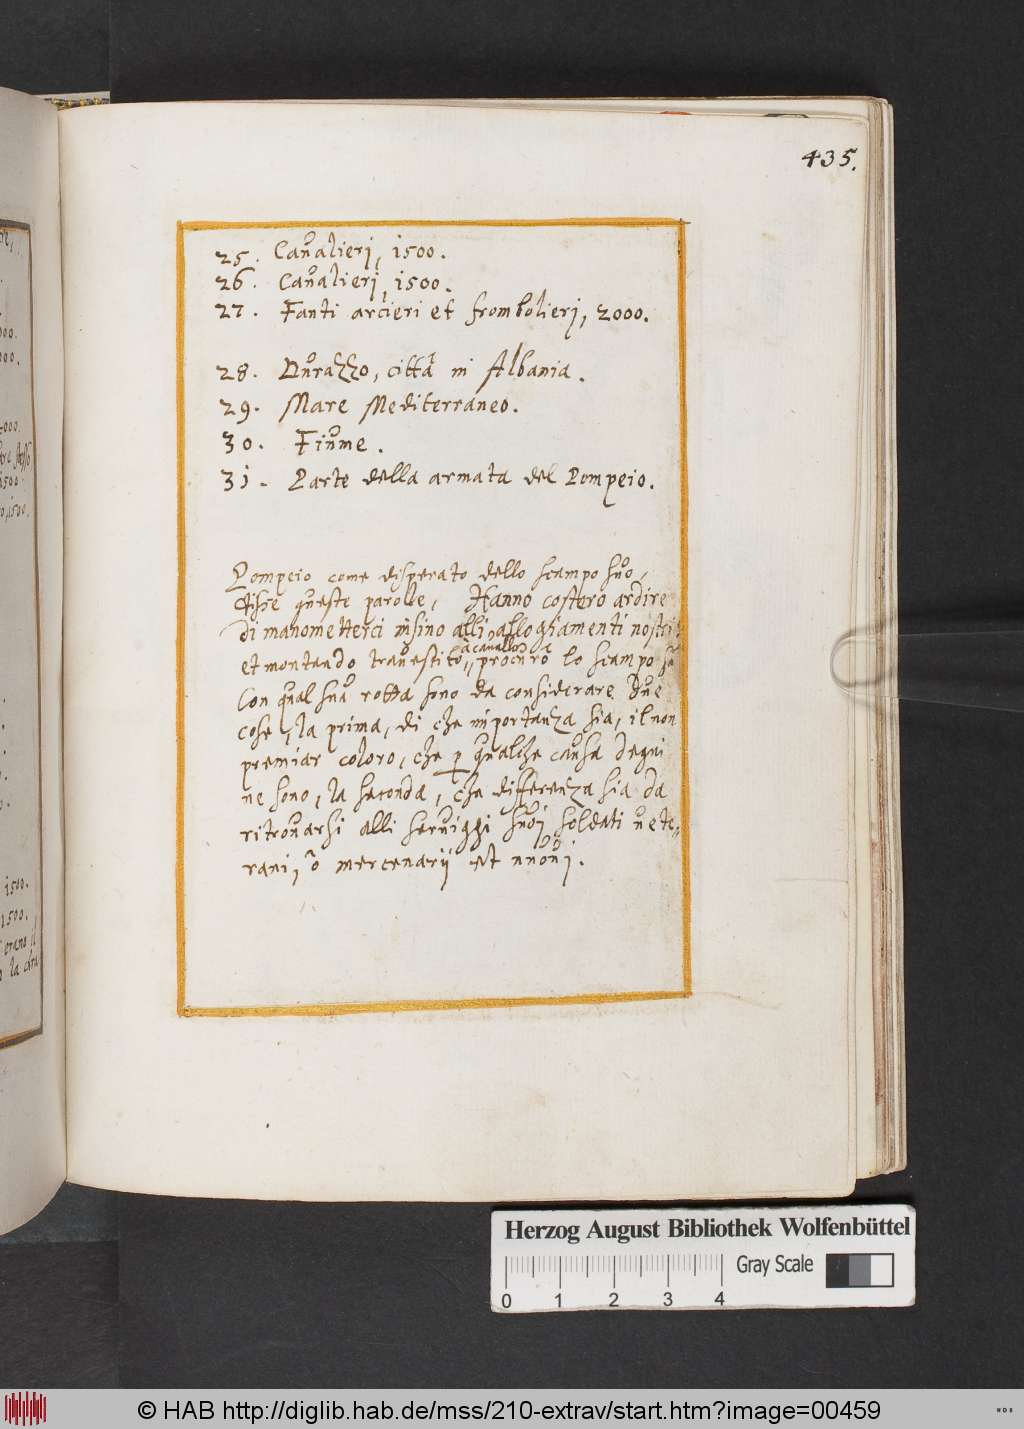 435.
25. Caualierj, i500.
26. Caualierj, i500.
27. Fanti arcieri et frombolierj, 2000.
28. Durazzo, città in Albania.
29. Mare Mediterraneo.
30. Fiume.
3i. Parte della armata del Pompeio.
Pompeio come disperato dello scampo suo,
disse queste parolle, Hanno costoro ardire
di manometterci insino alli allogiamenti nostri
et montando trauestito à cauallo, procurò lo scampo
Con qual sua rotta sono da considerare due
cose, la prima, di che importanza sia, il non
premiar coloro, che p qualche causa degni
ne sono, la seconda, che differenza sia da
ritrouarsi alli seruiggi suoj soldati uete,
rani, ò mercenarij et nuouj.
000.
000.
i500
i500.
i500.
1500.
erano il
Herzog August Bibliothek Wolfenbüttel
Gray Scale
0 1 2 3 4
© HAB http://diglib.hab.de/mss/210-extrav/start.htm?image=00459
HAB